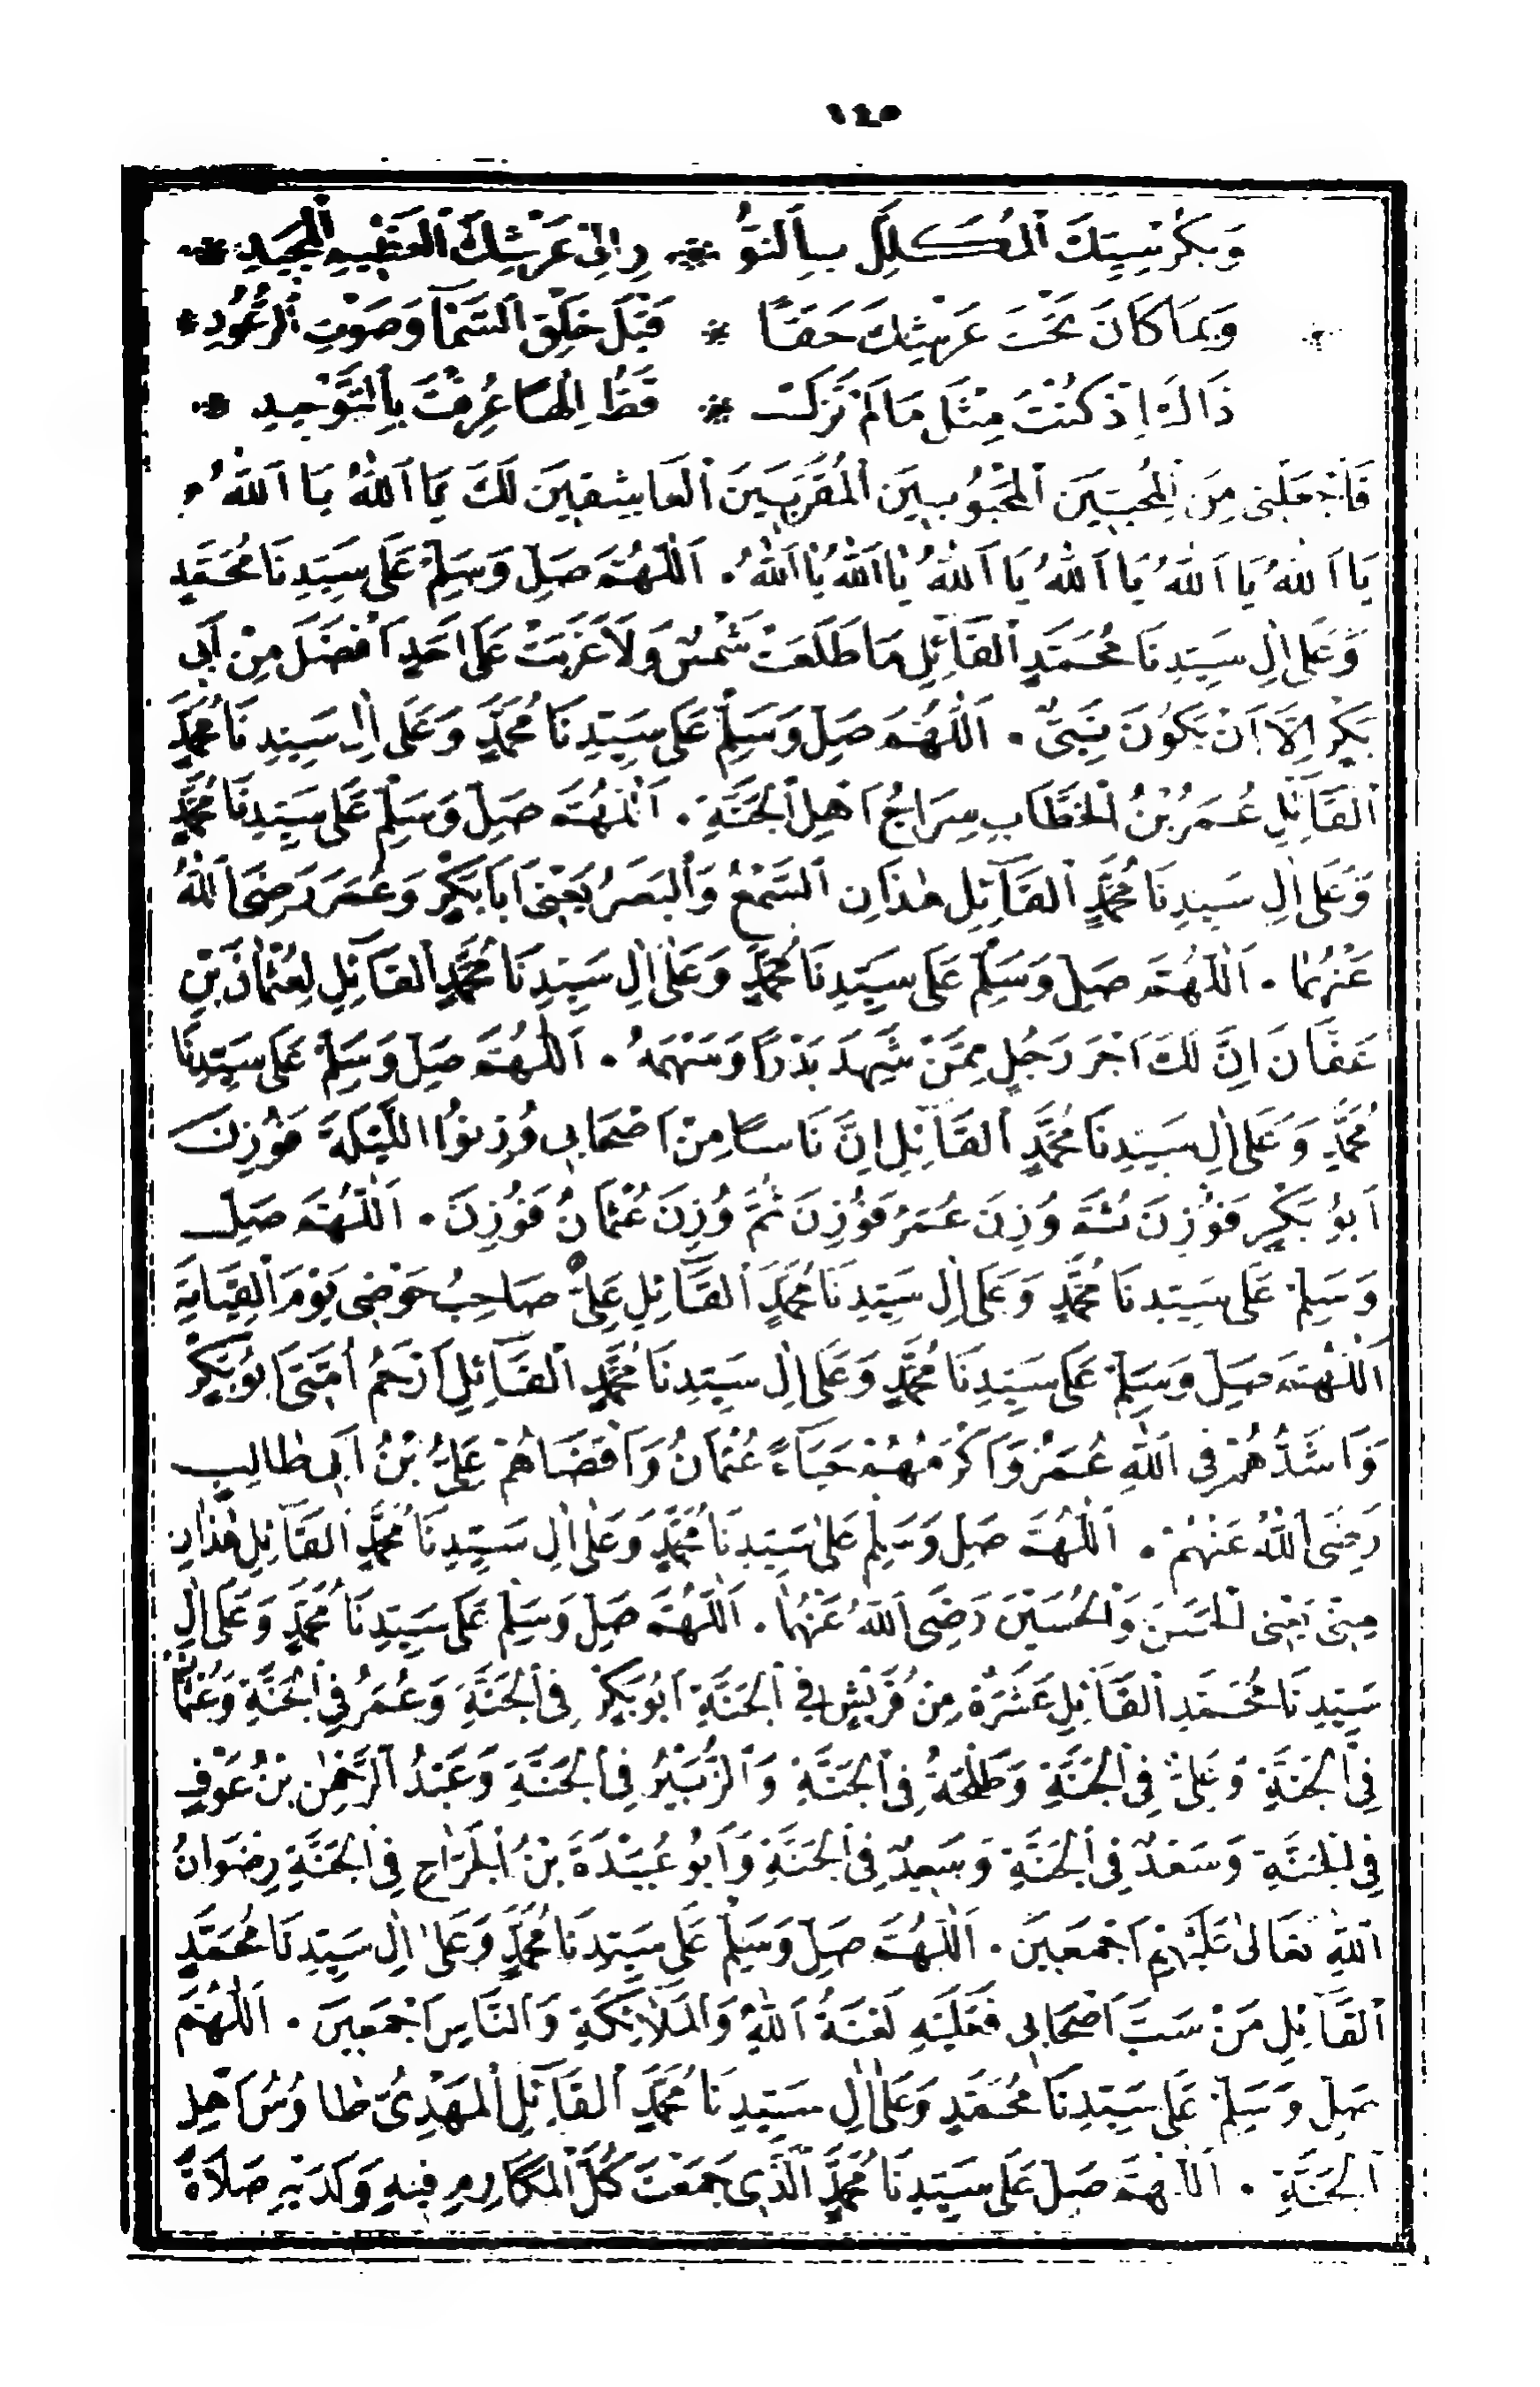 ١٤٥
وَبِكُرْسِيِّكَ الْمُكَلَّلِ بِالنُّو * رِ اِلٰى عَرْشِكَ الْعَظِيمِ الْمَجِيدِ *
وَبِمَا كَانَ تَحْتَ عَرْشِكَ حَقًّا * قَبْلَ خَلْقِ السَّمَآ وَصَوْتِ الرُّعُودِ *
ذَاكَ اِذْ كُنْتَ مِثْلَ مَا لَمْ تَزَلْ * قَطُّ اِلٰهًا عُرِفْتَ بِالتَّوْحِيدِ *
فَاجْعَلْنِى مِنَ الْمُحِبِّينَ الْمَحْبُوبِينَ الْمُقَرَّبِينَ الْعَاشِقِينَ لَكَ يَا اَللّٰهُ يَا اَللّٰهُ
يَا اَللّٰهُ يَا اَللّٰهُ يَا اَللّٰهُ يَا اَللّٰهُ يَا اَللّٰهُ يَا اَللّٰهُ . اَللّٰهُمَّ صَلِّ وَسَلِّمْ عَلٰى سَيِّدِنَا مُحَمَّدٍ
وَعَلٰى اٰلِ سَيِّدِنَا مُحَمَّدٍ الْقَآئِلِ مَا طَلَعَتْ شَمْسٌ وَلَا غَرَبَتْ عَلٰى اَحَدٍ اَفْضَلَ مِنْ اَبِى
بَكْرٍ اِلَّا اَنْ يَكُونَ نَبِىٌّ . اَللّٰهُمَّ صَلِّ وَسَلِّمْ عَلٰى سَيِّدِنَا مُحَمَّدٍ وَعَلٰى اٰلِ سَيِّدِنَا مُحَمَّدٍ
الْقَآئِلِ عُمَرُ بْنُ الْخَطَّابِ سِرَاجُ اَهْلِ الْجَنَّةِ . اَللّٰهُمَّ صَلِّ وَسَلِّمْ عَلٰى سَيِّدِنَا مُحَمَّدٍ
وَعَلٰى اٰلِ سَيِّدِنَا مُحَمَّدٍ الْقَآئِلِ هٰذَانِ السَّمْعُ وَالْبَصَرُ يَعْنِى اَبَا بَكْرٍ وَعُمَرَ رَضِىَ اللّٰهُ
عَنْهُمَا . اَللّٰهُمَّ صَلِّ وَسَلِّمْ عَلٰى سَيِّدِنَا مُحَمَّدٍ وَعَلٰى اٰلِ سَيِّدِنَا مُحَمَّدٍ الْقَآئِلِ لِعُثْمَانَ بْنِ
عَفَّانَ اِنَّ لَكَ اَجْرَ رَجُلٍ مِمَّنْ شَهِدَ بَدْرًا وَسَهْمَهُ . اَللّٰهُمَّ صَلِّ وَسَلِّمْ عَلٰى سَيِّدِنَا
مُحَمَّدٍ وَعَلٰى اٰلِ سَيِّدِنَا مُحَمَّدٍ الْقَآئِلِ اِنَّ نَاسًا مِنْ اَصْحَابِى وُزِنُوا اللَّيْلَةَ فَوُزِنَ
اَبُو بَكْرٍ فَوُزِنَ ثُمَّ وُزِنَ عُمَرُ فَوُزِنَ ثُمَّ وُزِنَ عُثْمَانُ فَوُزِنَ . اَللّٰهُمَّ صَلِّ
وَسَلِّمْ عَلٰى سَيِّدِنَا مُحَمَّدٍ وَعَلٰى اٰلِ سَيِّدِنَا مُحَمَّدٍ الْقَآئِلِ عَلِىٌّ صَاحِبُ حَوْضِى يَوْمَ الْقِيَامَةِ
اَللّٰهُمَّ صَلِّ وَسَلِّمْ عَلٰى سَيِّدِنَا مُحَمَّدٍ وَعَلٰى اٰلِ سَيِّدِنَا مُحَمَّدٍ الْقَآئِلِ اَرْحَمُ اُمَّتِى اَبُو بَكْرٍ
وَاَشَدُّهُمْ فِى اللّٰهِ عُمَرُ وَاَكْرَمُهُمْ حَيَآءً عُثْمَانُ وَاَقْضَاهُمْ عَلِىُّ بْنُ اَبِى طَالِبٍ
رَضِىَ اللّٰهُ عَنْهُمْ . اَللّٰهُمَّ صَلِّ وَسَلِّمْ عَلٰى سَيِّدِنَا مُحَمَّدٍ وَعَلٰى اٰلِ سَيِّدِنَا مُحَمَّدٍ الْقَآئِلِ هٰذَانِ
مِنِّى يَعْنِى الْحَسَنَ وَالْحُسَيْنَ رَضِىَ اللّٰهُ عَنْهُمَا . اَللّٰهُمَّ صَلِّ وَسَلِّمْ عَلٰى سَيِّدِنَا مُحَمَّدٍ وَعَلٰى اٰلِ
سَيِّدِنَا مُحَمَّدٍ الْقَآئِلِ عَشَرَةٌ مِنْ قُرَيْشٍ فِى الْجَنَّةِ اَبُو بَكْرٍ فِى الْجَنَّةِ وَعُمَرُ فِى الْجَنَّةِ وَعُثْمَانُ
فِى الْجَنَّةِ وَعَلِىٌّ فِى الْجَنَّةِ وَطَلْحَةُ فِى الْجَنَّةِ وَالزُّبَيْرُ فِى الْجَنَّةِ وَعَبْدُ الرَّحْمٰنِ بْنُ عَوْفٍ
فِى الْجَنَّةِ وَسَعْدٌ فِى الْجَنَّةِ وَسَعِيدٌ فِى الْجَنَّةِ وَاَبُو عُبَيْدَةَ بْنُ الْجَرَّاحِ فِى الْجَنَّةِ رِضْوَانُ
اللّٰهِ تَعَالٰى عَلَيْهِمْ اَجْمَعِينَ . اَللّٰهُمَّ صَلِّ وَسَلِّمْ عَلٰى سَيِّدِنَا مُحَمَّدٍ وَعَلٰى اٰلِ سَيِّدِنَا مُحَمَّدٍ
الْقَآئِلِ مَنْ سَبَّ اَصْحَابِى فَعَلَيْهِ لَعْنَةُ اللّٰهِ وَالْمَلَآئِكَةِ وَالنَّاسِ اَجْمَعِينَ . اَللّٰهُمَّ
صَلِّ وَسَلِّمْ عَلٰى سَيِّدِنَا مُحَمَّدٍ وَعَلٰى اٰلِ سَيِّدِنَا مُحَمَّدٍ الْقَآئِلِ الْمَهْدِىُّ طَاوُسُ اَهْلِ
الْجَنَّةِ . اَللّٰهُمَّ صَلِّ عَلٰى سَيِّدِنَا مُحَمَّدٍ الَّذِى جَمَعْتَ كُلَّ الْمَكَارِمِ فِيهِ وَلَدَيْهِ صَلَاةً